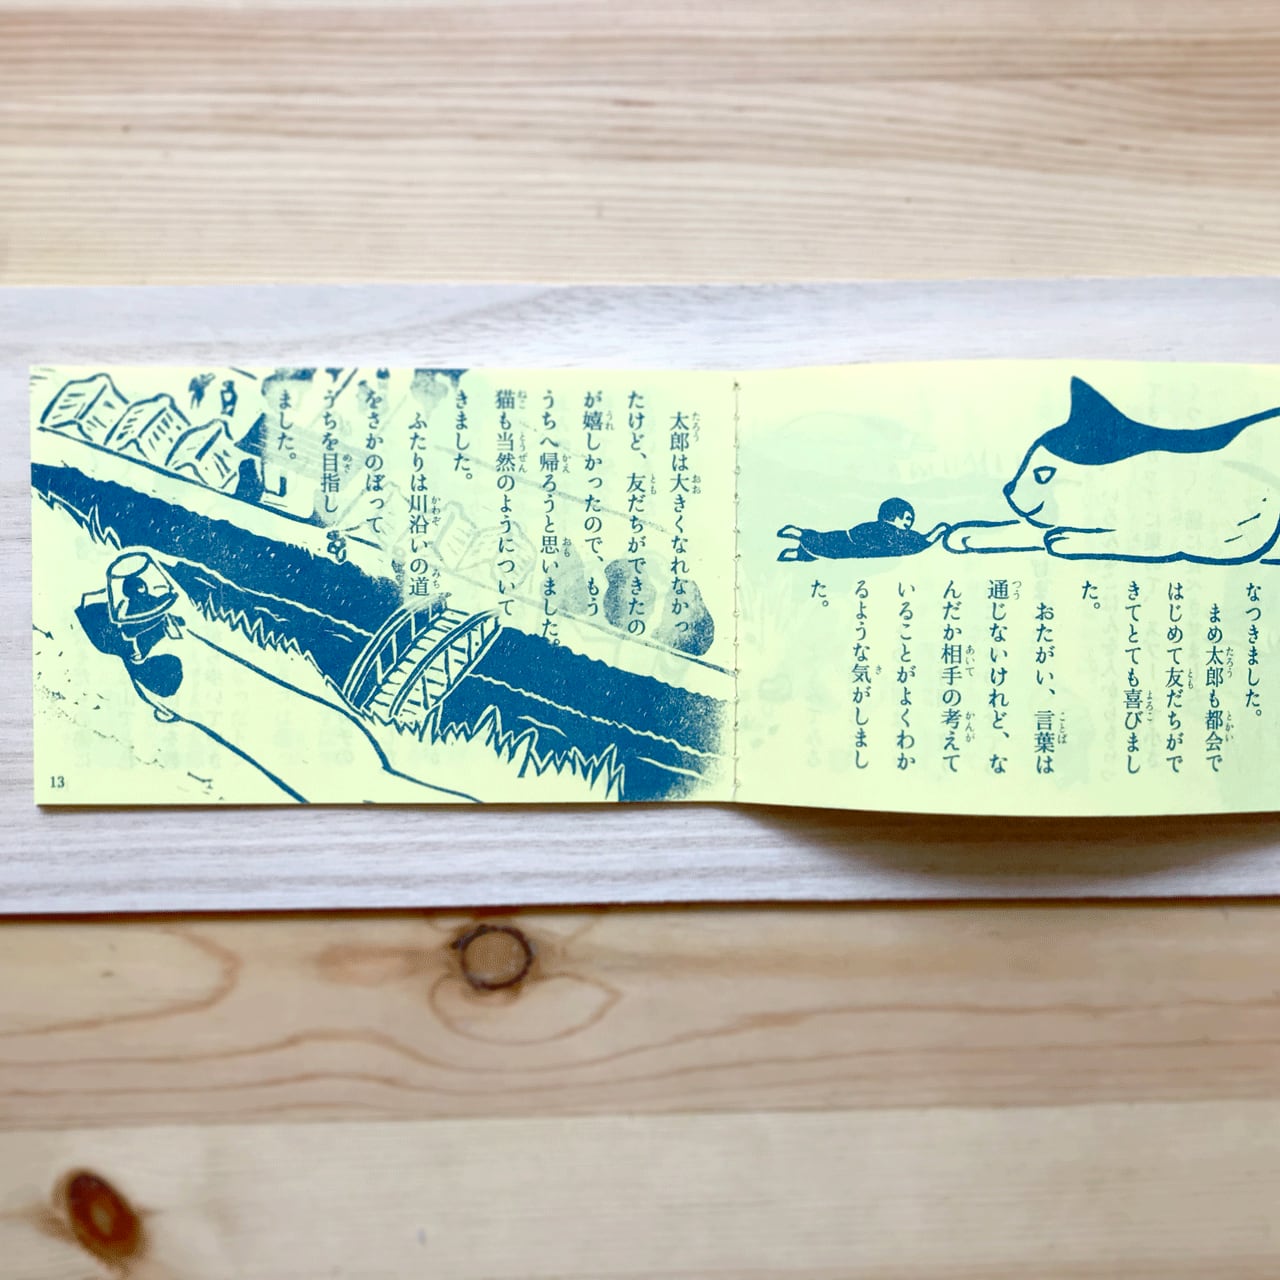 なつきました。
まめ太郎も都会で
はじめて友だちがで
きてとても喜びまし
た。
おたがい、言葉は
通じないけれど、な
んだか相手の考えて
いることがよくわか
るような気がしまし
た。
太郎は大きくなれなかっ
たけど、友だちができたの
が嬉しかったので、もう
うちへ帰ろうと思いました。
猫も当然のようについて
きました。
ふたりは川沿いの道
をさかのぼって
うちを目指し
ました。
13